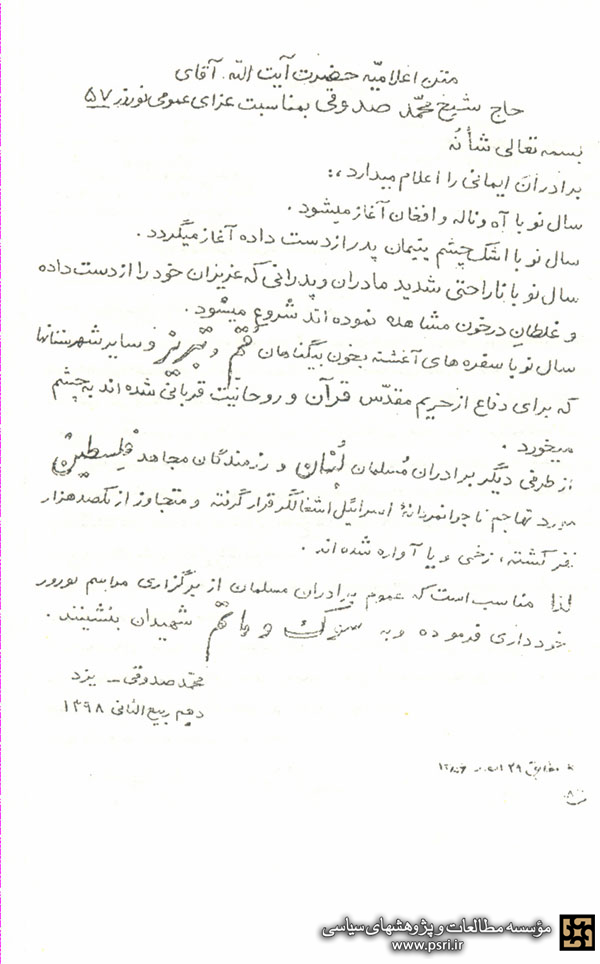 متن اعلامیه حضرت آیت الله آقای
حاج شیخ محمد صدوقی بمناسبت عزای عمومی نوروز ۵۷
بسمه تعالی شأنه
برادران ایمانی را اعلام میدارد،:
سال نو با آه و ناله و افغان آغاز میشود.
سال نو با اشک چشم یتیمان پدر از دست داده آغاز میگردد.
سال نو با ناراحتی شدید مادران و پدرانی که عزیزان خود را از دست داده
و غلطان در خون مشاهده نموده اند شروع میشود.
سال نو با سفره های آغشته بخون بیگناهان قم و تبریز و سایر شهرستانها
که برای دفاع از حریم مقدّس قرآن و روحانیت قربانی شده اند به چشم
میخورد.
از طرفی دیگر برادران مُسلمان لبنان و رزمندگان مجاهد فلسطین
مورد تهاجم ناجوانمردانهٔ اسرائیل اشغالگر قرار گرفته و متجاوز از یکصد هزار
نفر کشته، زخمی و یا آواره شده اند.
لذا مناسب است که عموم برادران مسلمان از برگزاری مراسم نوروز
خودداری فرموده و به سوک و ماتم شهیدان بنشینند.
محمّد صدوقی - یزد
دهم ربیع الثانی ۱۳۹۸
* مطابق ۲۹
مؤسسه مطالعات و پژوهشهای سیاسی
www.psri.ir